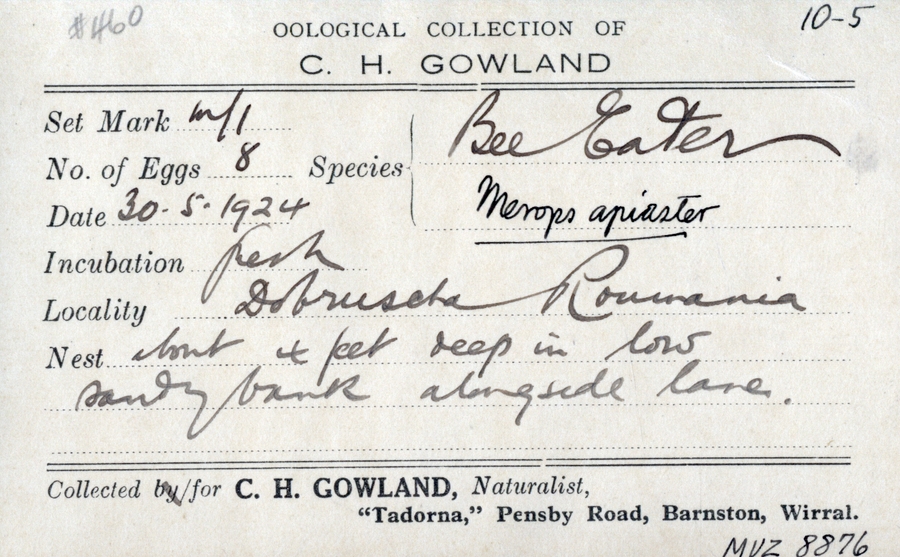 #460
10-5
OOLOGICAL COLLECTION OF
C. H. GOWLAND
Set Mark m/1
No. of Eggs 8 Species Bee Eater
Date 30-5-1924 Merops apiaster
Incubation fresh
Locality Dobruscha Roumania
Nest about 4 feet deep in low
sandy bank alongside lane.
Collected by/for C. H. GOWLAND, Naturalist,
"Tadorna," Pensby Road, Barnston, Wirral.
MVZ 8876